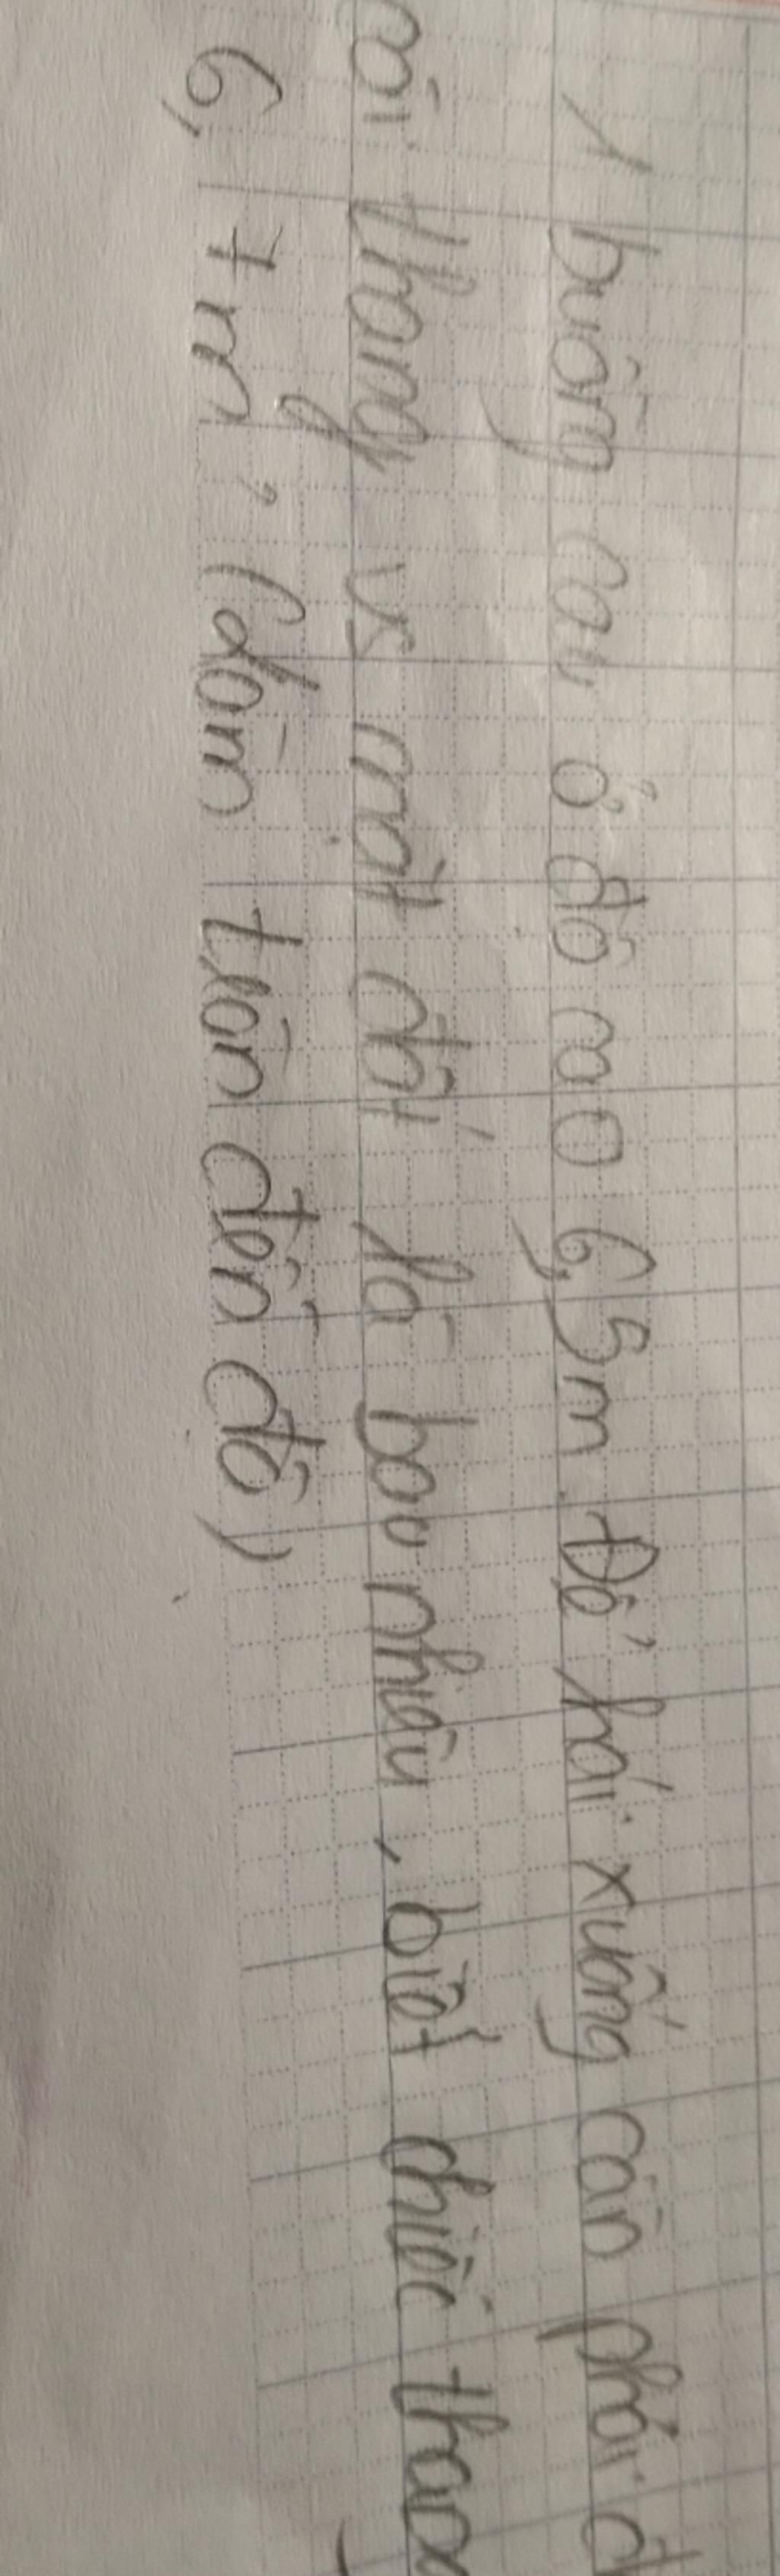 1 buồng cau ở độ cao 6,5m. Để hái xuống cần phải đ
thang vs mặt đất là bao nhiêu, biết chiếc thang
6,7m, (làm tròn đến độ)